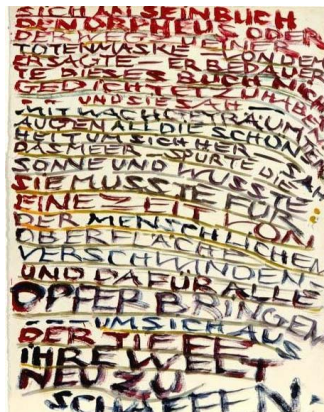 SICH MIT SEINBUCH
DEN ORPHEUS ODER
DER WEG ZU EINER
TOTENMASKE VON DEM
ER SAGTE – ER BEDAUER
TE DIESES BUCH NICHT
GEDICHTET ZU HABEN
– UND SIE SAH –
MIT WACHGETRÄUMTEN
AUGEN ALL DIE SCHÖN
HEIT UM SICH HER – SAH
DAS MEER – SPÜRTE DIE
SONNE UND WUSSTE
SIE MUSSTE FÜR
EINE ZEIT VON
DER MENSCHLICHEN
OBERFLÄCHE
VERSCHWINDEN –
UND DAFÜR ALLE
OPFER BRINGEN
UM SICH AUS
DER TIEFE
IHRE WELT
NEU ZU
SCHAFFEN.